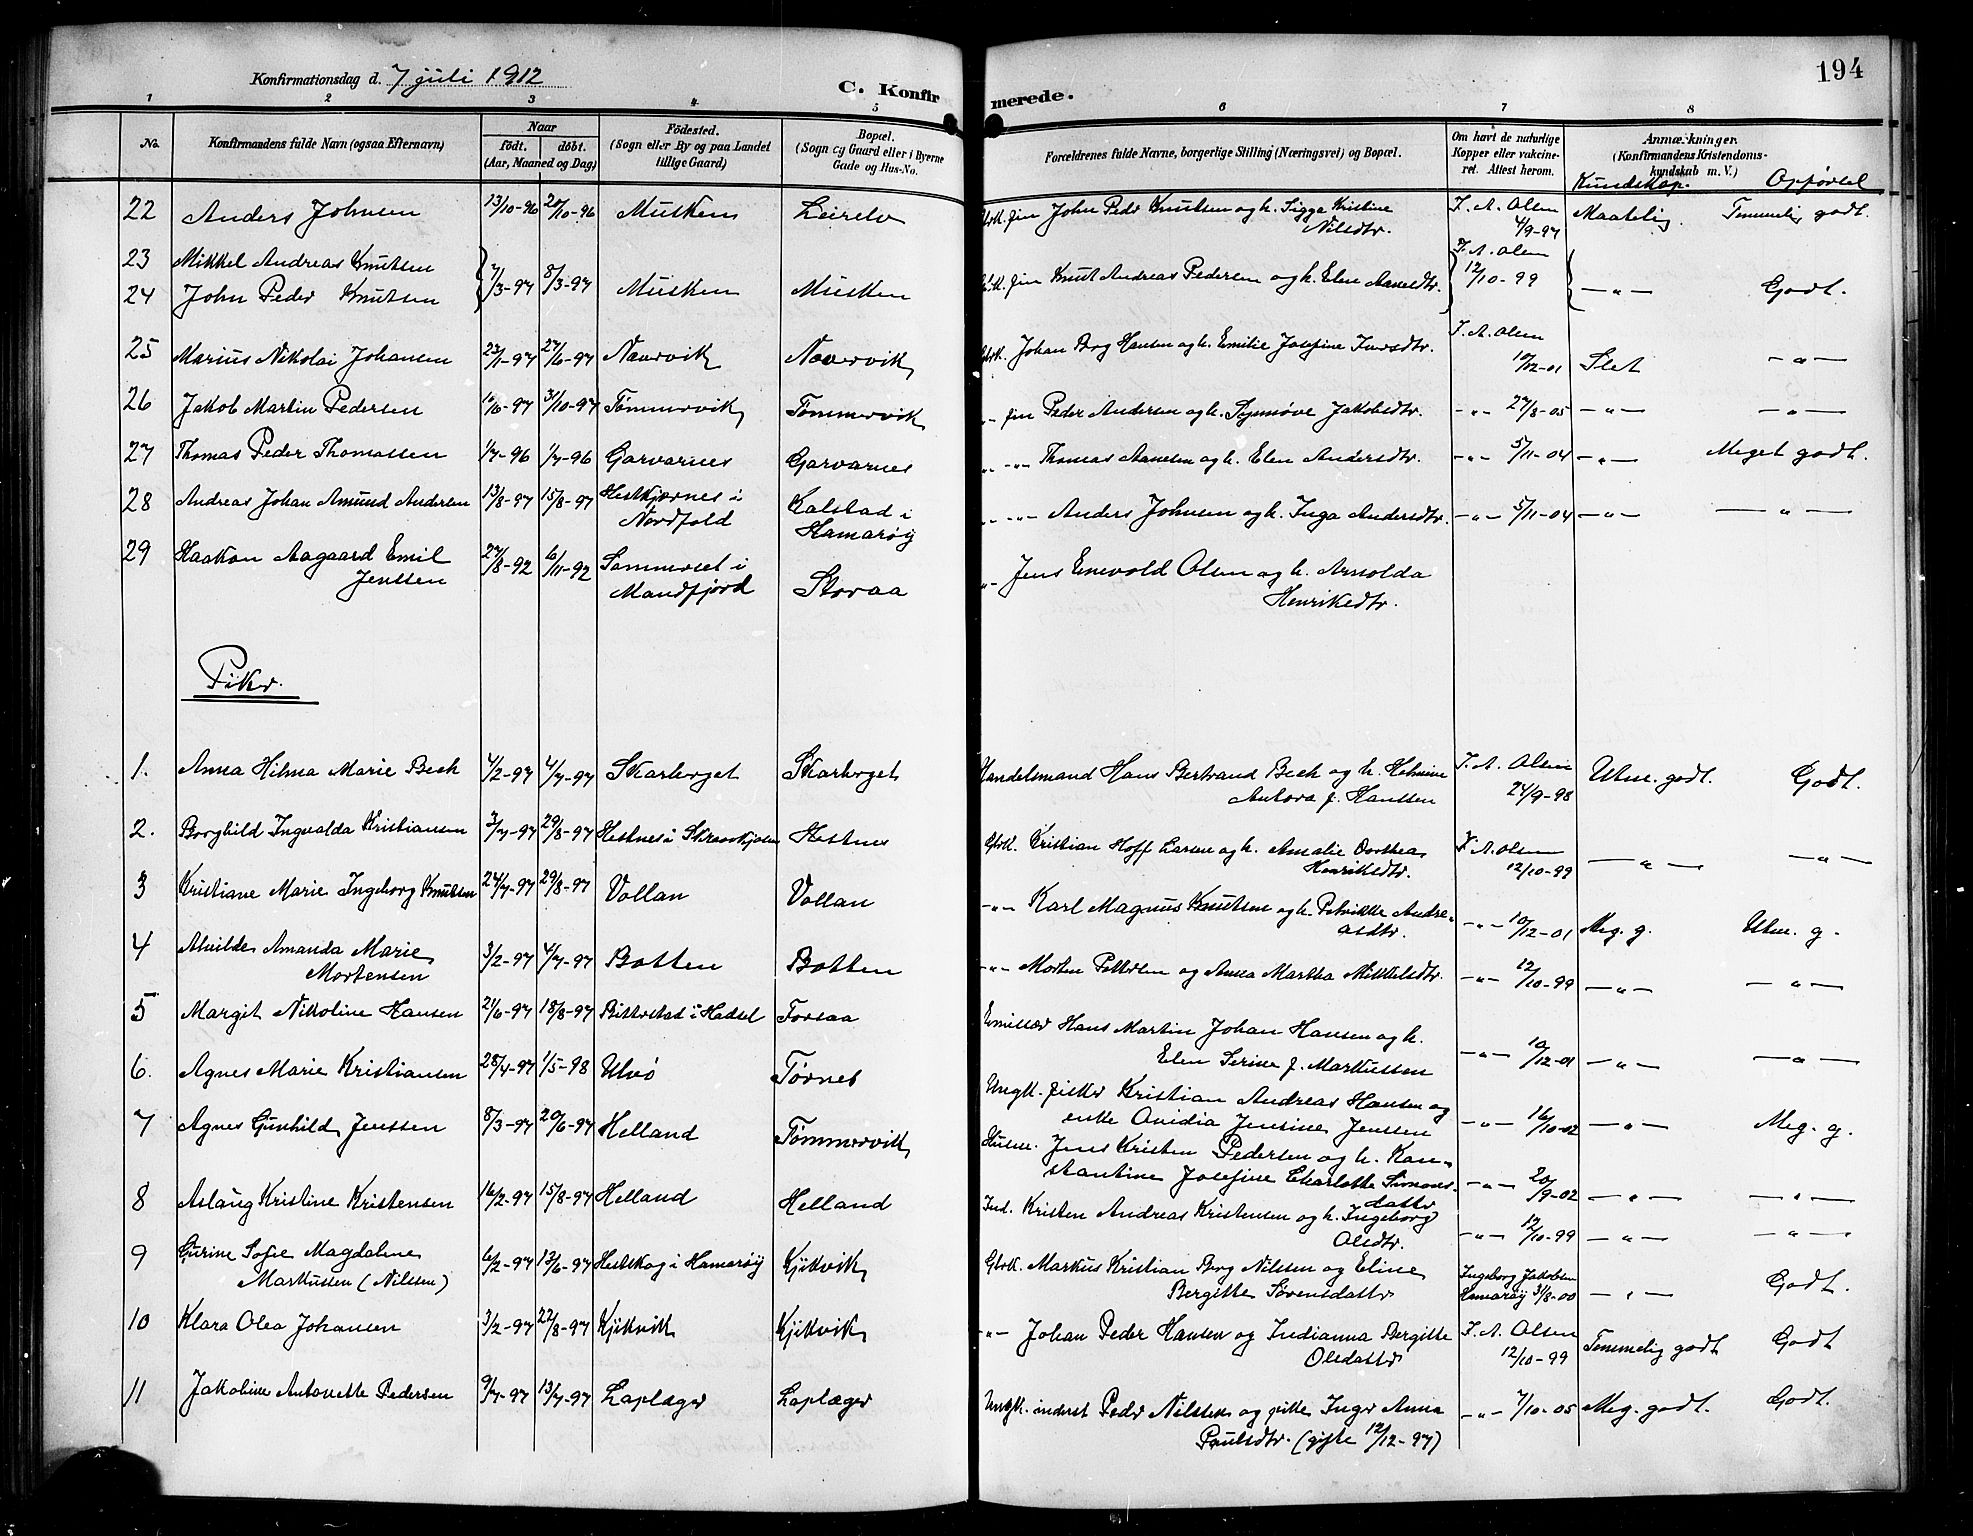 194
Konfirmationsdag d. 7 juli 1912
C. Konfirmerede.
1 2 3 4 5 6 7 8
No. Konfirmandens fulde Navn (ogsaa Efternavn) Naar födt. döbt. (Aar, Maaned og Dag) Födested. (Sogn eller By og paa Landet tillige Gaard) Bopæl. (Sogn og Gaard eller i Byerne Gade og Hus-No. Forældrenes fulde Navne, borgerlige Stilling (Næringsvei) og Bopæl. Om havt de naturlige Kopper eller vakcineret. Attest herom. Anmærkninger. (Konfirmandens Kristendomskundskab m. V.)
Kundskap. Opførsel
22 Anders Johnsen 13/10-96 /10-96 Musken Leirelv Gbrk. fin John Peder Knutsen og h. Sigga Kristine Nilsdtr. J. A. Olsen 4/9-97 Maatelig Temmelig godt.
23 Mikkel Andreas Knutsen
24 John Peder Knutsen 7/3-97 8/3-97 Musken Musken fin Knut Andreas Pedersen og h. Elen Aanesdtr. J. A. Olsen 12/10-99 -"- Godt.
25 Marius Nikolai Johansen 27/6-97 Nævervik Nævervik Gbrk. Johan Berg Hansen og h. Emilie Josefine Iversdtr. J. A. Olsen 10/12-01 Slet -"-
26 Jakob Martin Pedersen /6-97 31/10-97 Tømmervik Tømmervik -"- fin Peder Andersen og h. Synnøve Jakobsdtr. -"- 27/8-05 -"- -"-
27 Thomas Peder Thomassen 1/7-96 1/7-96 Garvarnes Garvarnes -"- -"- Thomas Aanesen og h. Elen Andersdtr. -"- 5/11-04 -"- Meget godt.
28 Andreas Johan Amund Andersen 13/8-97 15/8-97 Hestkjærnes i Nordfold Kalstad i Hamarøy -"- -"- Anders Johnsen og h. Inga Andersdtr. -"- 5/11-04 -"- -"-
29 Haakon Aagaard Emil Jenssen 27/8-92 6/11-92 Sommerset i Mandfjord Storaa -"- Jens Enevold Olsen og h. Arnolda Henriksdtr.
Piker.
1. Anna Hilma Marie Beck 4/2-97 4/7-97 Skarberget Skarberget Handelsmand Hans Bertrand Beck og h. Helmine Antora f. Hanssen J. A. Olsen 24/9-98 Utm. godt. Godt.
2. Borghild Ingvalda Kristiansen 3/7-97 29/8-97 Hestnes i Hestnes Gbrk. Kristian Hoff Larsen og h. Amalie Dorthea Henriksdtr. J. A. Olsen 12/10-99 -"- -"-
3 Kristiane Marie Ingeborg Knutsen 24/7-97 29/8-97 Vollan Vollan -"- Karl Magnus Knutsen og h. Petrikke Andreasdtr. -"- 10/12-01 Meg. g. Utm. g.
4 Alvilde Amanda Marie Mortensen 3/2-97 4/7-97 Botten Botten -"- Morten Pettersen og Anna Martha Mikkelsdtr. -"- 12/10-99 -"- -"-
5 Margit Nikoline Hansen 21/6-97 18/8-97 Bitterstad i Hadsel Forsaa Emissær Hans Martin Johan Hansen og h. Elen Serine f. Markussen -"- 10/12-01 -"- -"-
6. Agnes Marie Kristiansen 28/4-97 1/5-98 Ulvö Tørnes Ungk. fisker Kristian Andreas Hansen og enke Ovidia Jensine Jenssen -"- 16/10-02 -"- Meg. g.
7 Agnes Gunhild Jenssen 8/3-97 20/6-97 Helland Tømmervik Husm. Jens Kristen Pedersen og h. Konstantine Josefine Charlotte Simonsdatter -"- 20/9-02 -"- -"-
8 Aslaug Kristine Kristensen 16/2-97 15/8-97 Helland Helland Ind. Kristen Andreas Kristensen og h. Ingeborg Olsdtr. -"- 12/10-99 -"- -"-
9 Gurine Sofie Magdalene Markussen (Nilsen) 6/2-97 13/6-97 Hestskog i Hamarøy Kjikvik Gbrk. Markus Kristian Berg Nilssen og Eline Bergitte Sørensdatter Ingeborg Jakobsen Hamarøy 3/8-00 -"- Godt.
10 Klara Olea Johansen 3/2-97 22/8-97 Kjikvik Kjikvik -"- Johan Peder Hansen og Indianna Bergitte Olsdatter J. A. Olsen 12/10-99 Temmelig godt Godt
11 Jakobine Antonette Pedersen 9/7-97 13/7-97 Laplæger Laplæger Ungk. inderst Peder Nilssen og pike Inger Anna Paulsdtr. (gifte 12/12-97) -"- 7/10-05 Meg. godt. Godt.